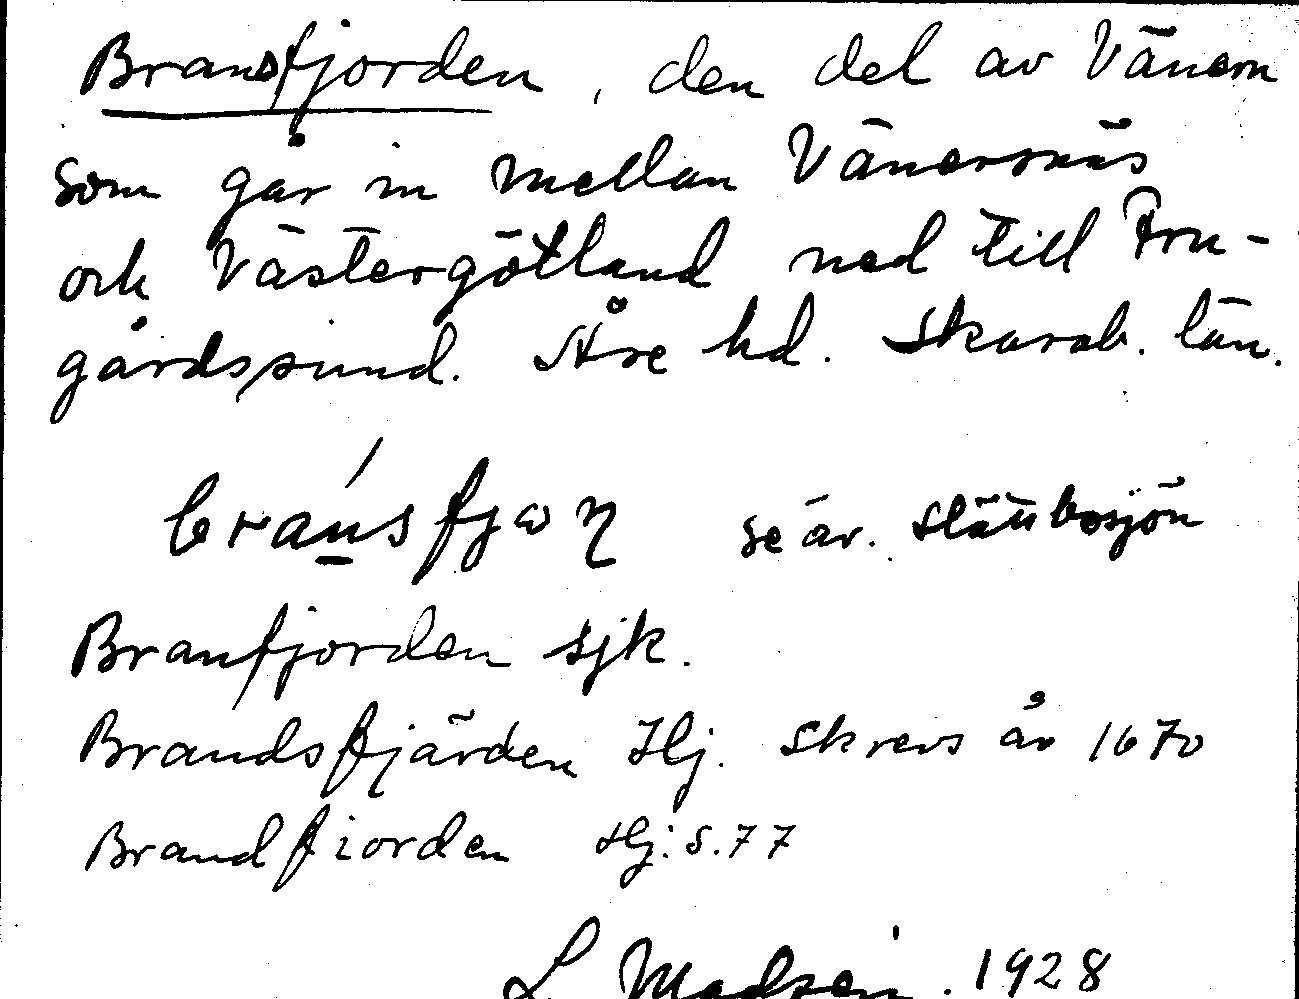 Bransfjorden, den del av Vänern
som går in mellan Vänersnäs
och Västergötland ned till Fru-
gårdssund. Åse hd. Skarab. län.
bránsfjωη se äv. Slättbosjön
Branfjorden sjk.
Brandsfjärden Hj. Skrevs år 1670
Brandfiorden Hj. s. 77
L Madsen. 1928